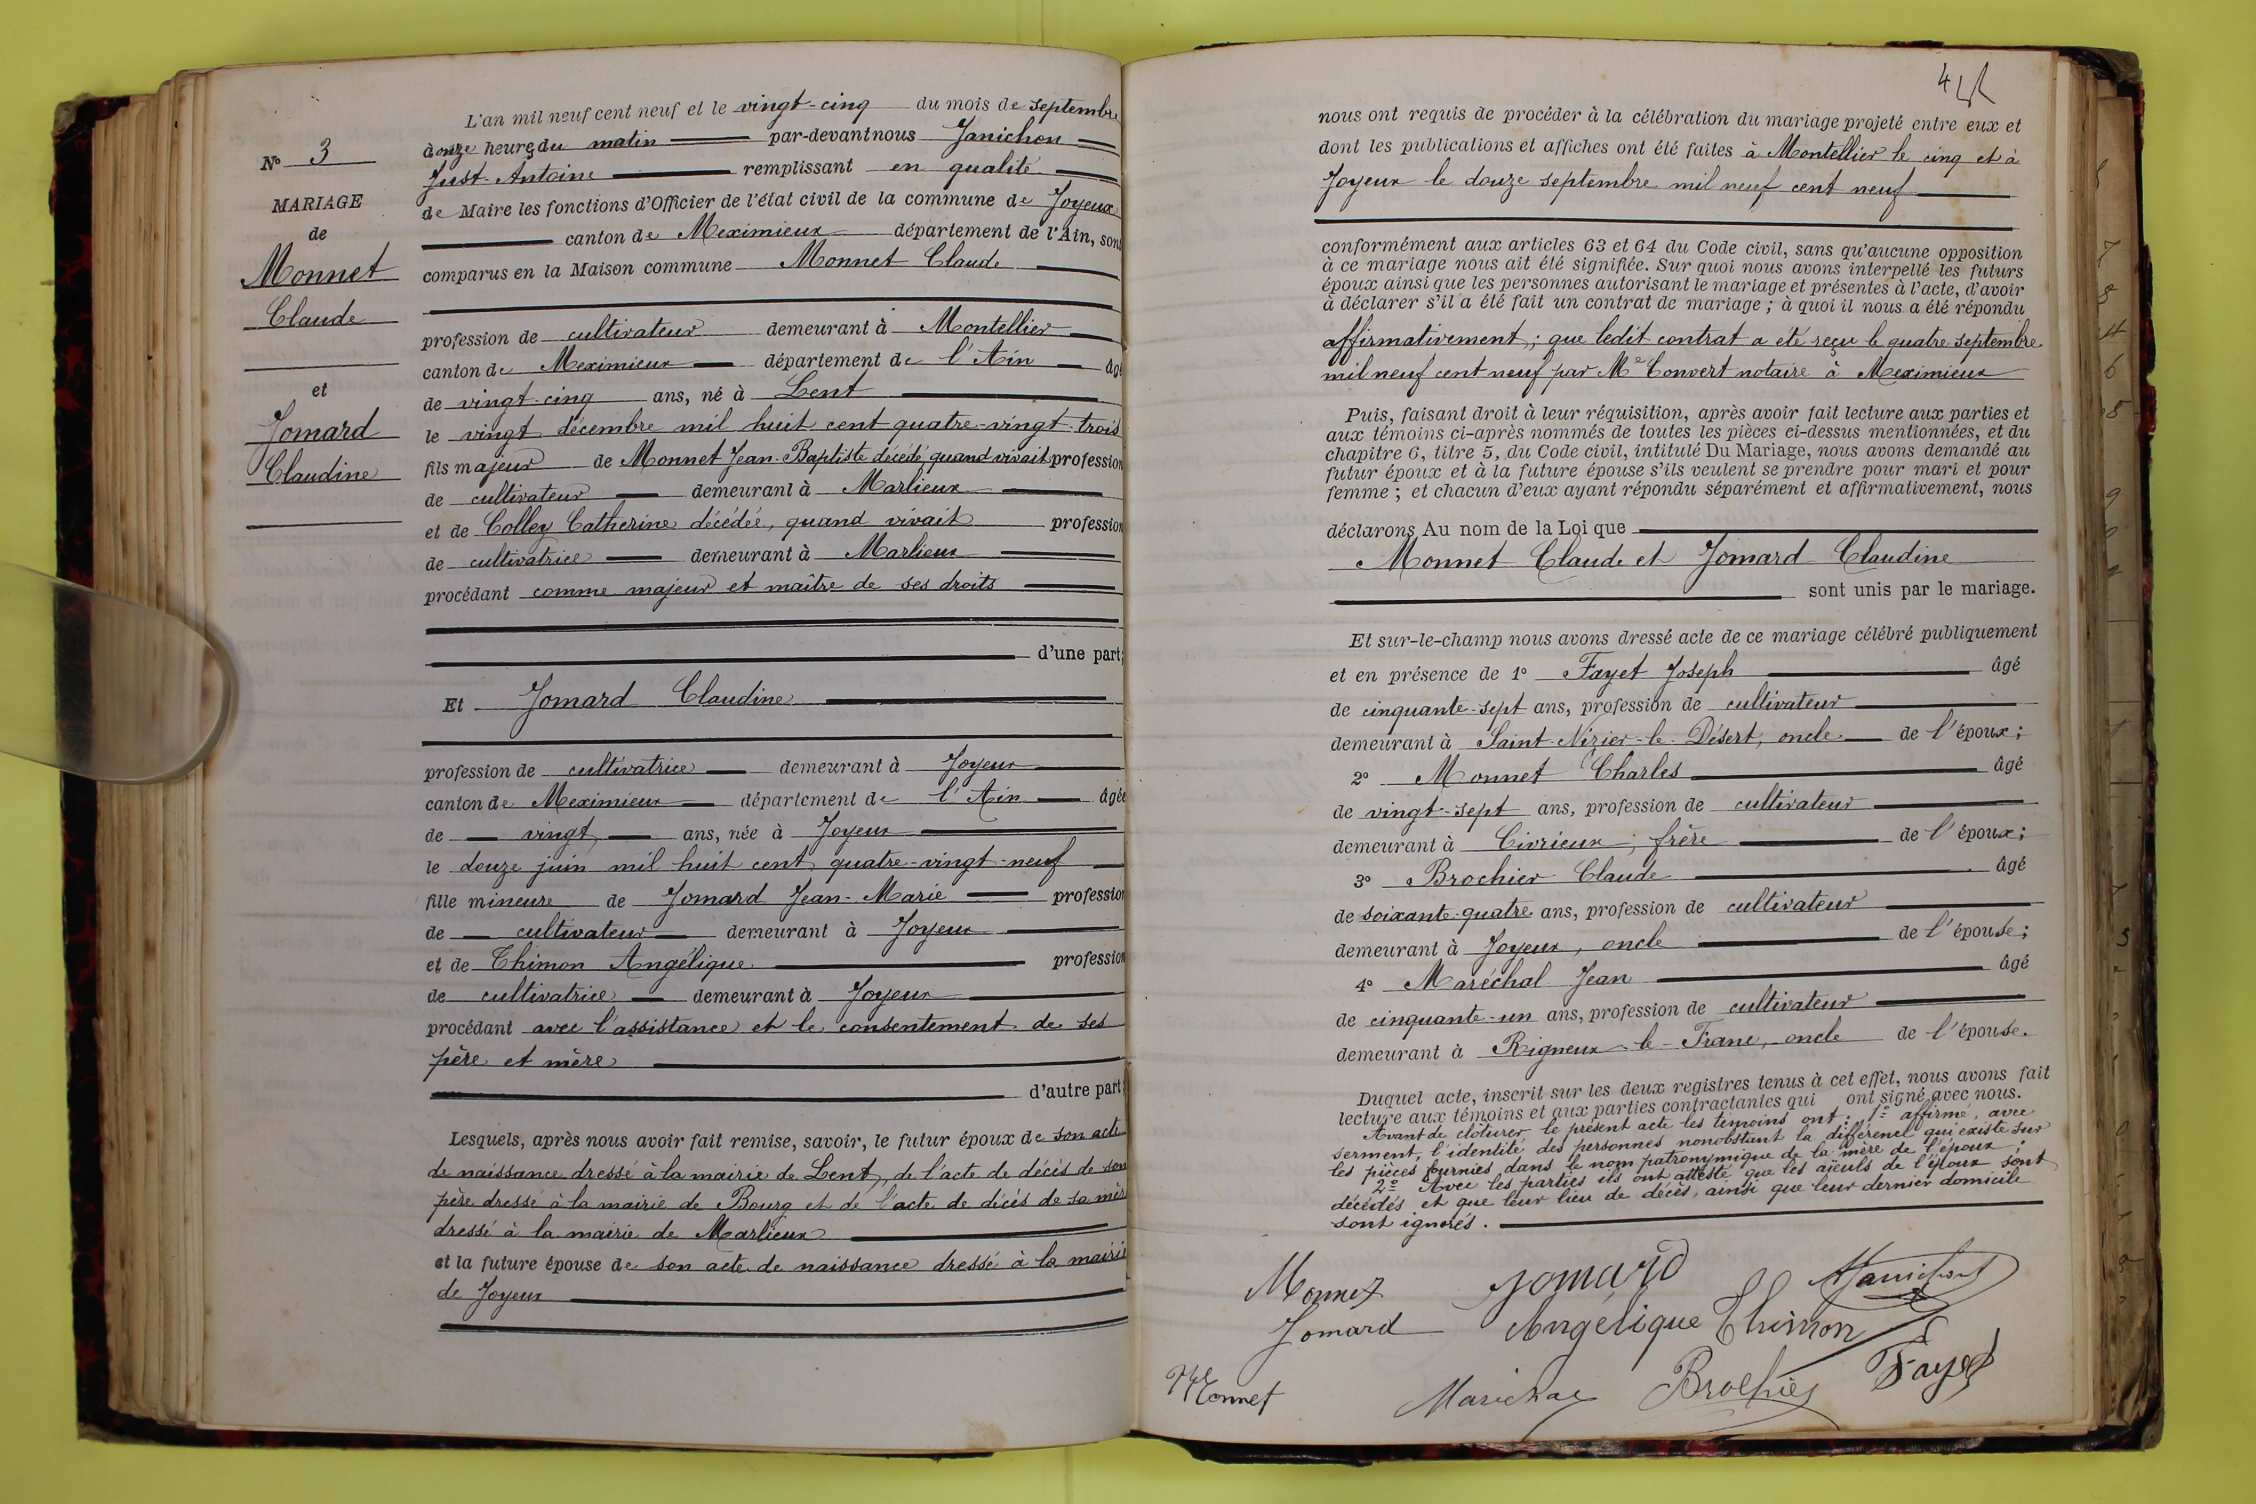 L'an mil neuf cent neuf et le vingt-cinq du mois de septembre
à onze heures du matin par-devant nous Janichon
Just-Antoine remplissant en qualité
de Maire les fonctions d'Officier de l'état civil de la commune de Joyeux
canton de Meximieux département de l'Ain, sont
comparus en la Maison commune Monnet Claude
profession de cultivateur demeurant à Montellier
canton de Meximieux département de l'Ain âgé
de vingt-cinq ans, né à Lent
le vingt décembre mil huit cent quatre-vingt-trois
fils majeur de Monnet Jean-Baptiste décédé, quand vivait profession
de cultivateur demeurant à Marlieux
et de Colley Catherine décédée, quand vivait profession
de cultivatrice demeurant à Marlieux
procédant comme majeur et maître de ses droits
d'une part;
Et Jomard Claudine
profession de cultivatrice demeurant à Joyeux
canton de Meximieux département de l'Ain âgée
de vingt ans, née à Joyeux
le douze juin mil huit cent quatre-vingt-neuf
fille mineure de Jomard Jean-Marie profession
de cultivateur demeurant à Joyeux
et de Thimon Angélique profession
de cultivatrice demeurant à Joyeux
procédant avec l'assistance et le consentement de ses
père et mère
d'autre part;
Lesquels, après nous avoir fait remise, savoir, le futur époux de son acte
de naissance dressé à la mairie de Lent, de l'acte de décès de son
père dressé à la mairie de Bourg et de l'acte de décès de sa mère
dressé à la mairie de Marlieux
et la future épouse de son acte de naissance dressé à la mairie
de Joyeux
N° 3
MARIAGE
de
Monnet
Claude
et
Jomard
Claudine
nous ont requis de procéder à la célébration du mariage projeté entre eux et
dont les publications et affiches ont été faites à Montellier le cinq et à
Joyeux le douze septembre mil neuf cent neuf
conformément aux articles 63 et 64 du Code civil, sans qu'aucune opposition
à ce mariage nous ait été signifiée. Sur quoi nous avons interpellé les futurs
époux ainsi que les personnes autorisant le mariage et présentes à l'acte, d'avoir
à déclarer s'il a été fait un contrat de mariage ; à quoi il nous a été répondu
affirmativement; que ledit contrat a été reçu le quatre septembre
mil neuf cent neuf par Me Convert notaire à Meximieux
Puis, faisant droit à leur réquisition, après avoir fait lecture aux parties et
aux témoins ci-après nommés de toutes les pièces ci-dessus mentionnées, et du
chapitre 6, titre 5, du Code civil, intitulé Du Mariage, nous avons demandé au
futur époux et à la future épouse s'ils veulent se prendre pour mari et pour
femme ; et chacun d'eux ayant répondu séparément et affirmativement, nous
déclarons Au nom de la Loi que
Monnet Claude et Jomard Claudine
sont unis par le mariage.
Et sur-le-champ nous avons dressé acte de ce mariage célébré publiquement
et en présence de 1° Fayet Joseph âgé
de cinquante-sept ans, profession de cultivateur
demeurant à Saint-Nizier-le-Désert, oncle de l'époux;
2° Monnet Charles âgé
de vingt-sept ans, profession de cultivateur
demeurant à Civrieux, frère de l'époux;
3° Brochier Claude âgé
de soixante-quatre ans, profession de cultivateur
demeurant à Joyeux, oncle de l'épouse;
4° Maréchal Jean âgé
de cinquante-un ans, profession de cultivateur
demeurant à Rigneux-le-Franc, oncle de l'épouse.
Duquel acte, inscrit sur les deux registres tenus à cet effet, nous avons fait
lecture aux témoins et aux parties contractantes qui ont signé avec nous.
Avant de clôturer le présent acte les témoins ont: 1° affirmé avec
serment, l'identité des personnes nonobstant la différence qui existe sur
les pièces fournies dans le nom patronymique de la mère de l'époux;
2° Avec les parties ils ont attesté que les aïeuls de l'époux sont
décédés et que leur lieu de décès, ainsi que leur dernier domicile
sont ignorés.
Monnet Jomard AJanichon
Jomard Angélique Thimon
Monnet Maréchal Brochier Fayet